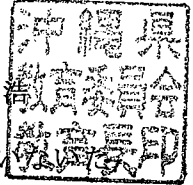 沖縄県
教育委員会
教育長印
浩